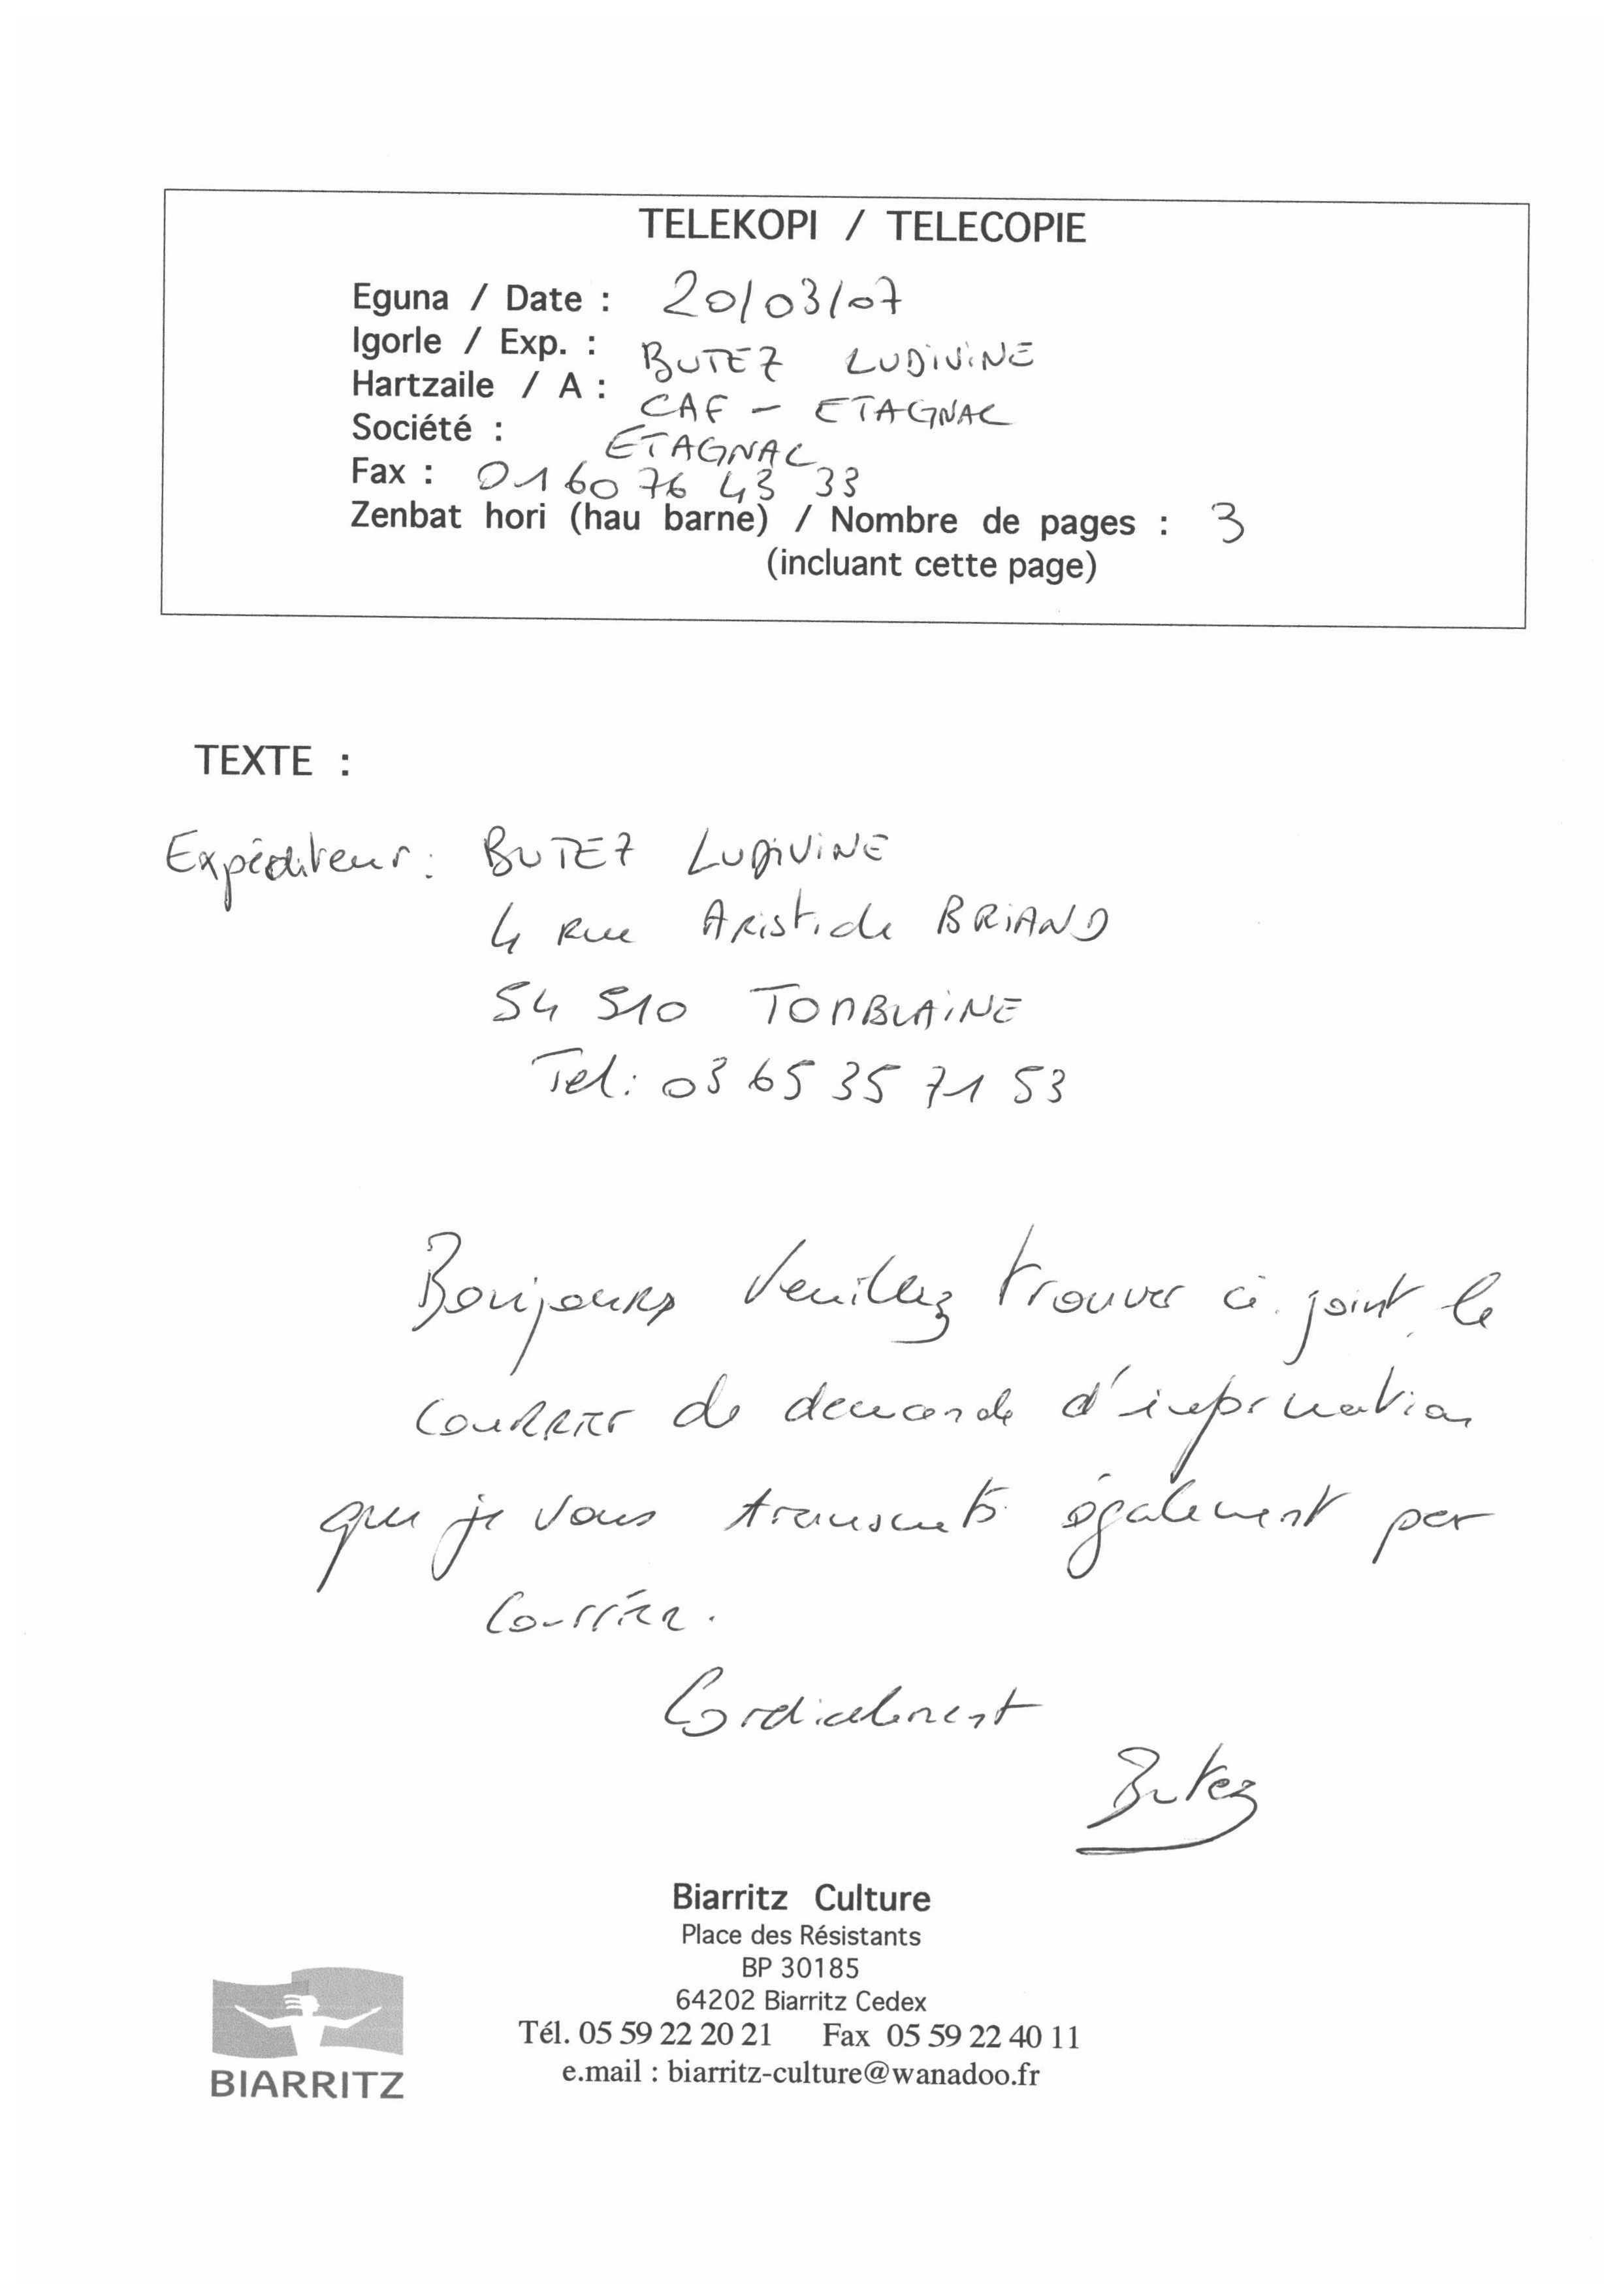 TELEKOPI / TELECOPIE
Eguna / Date : 20/03/07
Igorle / Exp. : BUTEZ LUDIVINE
Hartzaile / A : CAF - ETAGNAC
Société : ETAGNAC
Fax : 01 60 76 43 33
Zenbat hori (hau barne) / Nombre de pages : 3
(incluant cette page)
TEXTE :
Expéditeur : BUTEZ LUDIVINE
4 Rue Aristide BRIAND
54 510 TOMBLAINE
Tel : 03 65 35 71 53
Bonjour, Veuillez trouver ci joint le
courrier de demande d'information
que je vous transmets également par
courrier.
Cordialement
Butez
Biarritz Culture
Place des Résistants
BP 30185
64202 Biarritz Cedex
Tél. 05 59 22 20 21 Fax 05 59 22 40 11
e.mail : biarritz-culture@wanadoo.fr
BIARRITZ